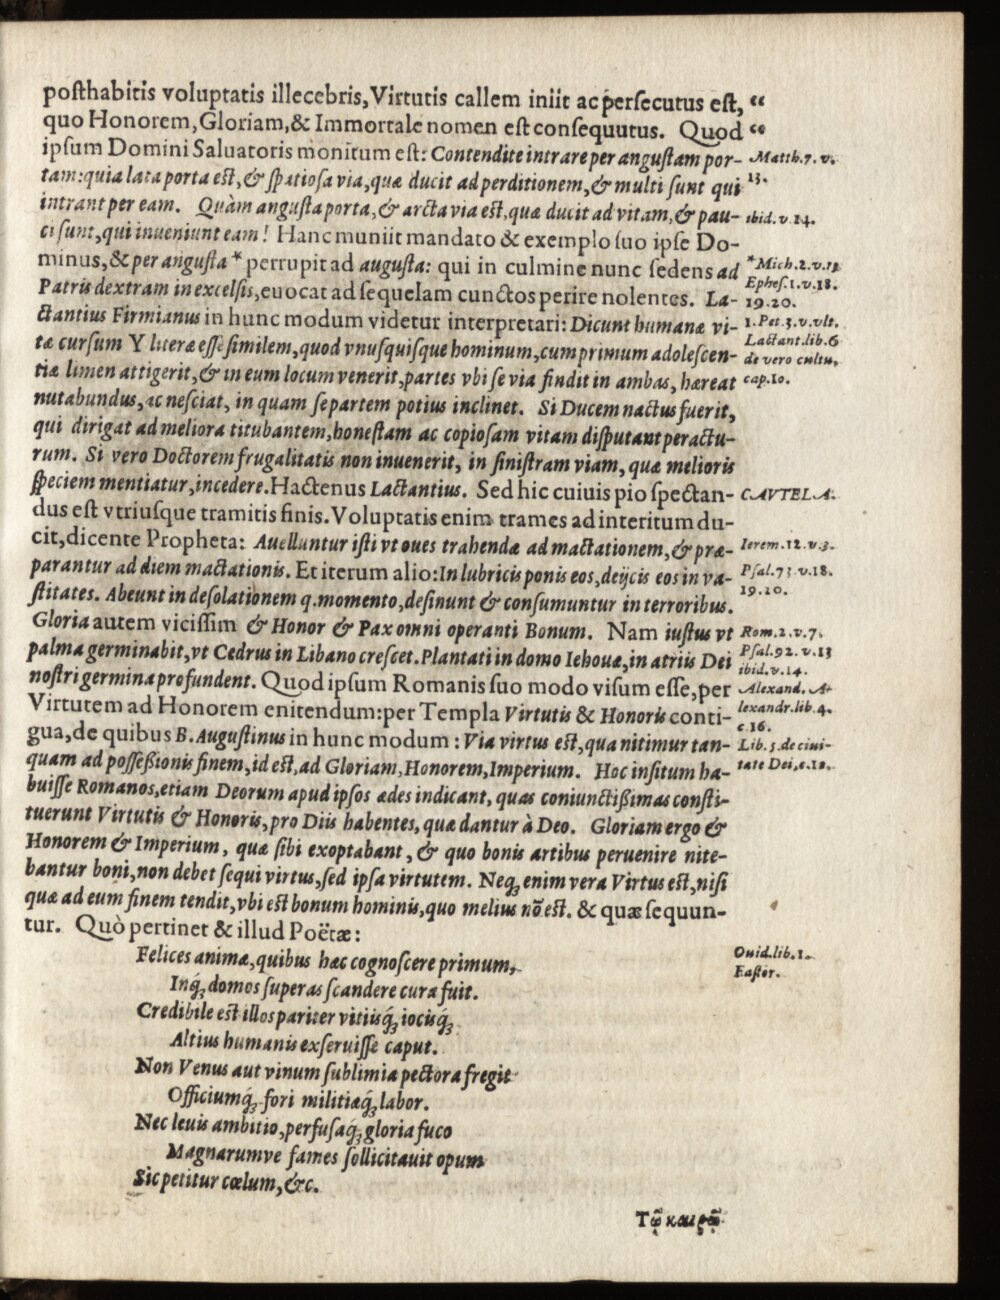 posthabitis voluptatis illecebris, Virtutis callem iniit ac persecutus est, “
quo Honorem, Gloriam, & Immortale nomen est consequutus. Quod “
ipsum Domini Saluatoris monitum est: Contendite intrare per angustam por- Matth. 7. v.
tam: quia lata porta est, & spatiosa via, quæ ducit ad perditionem, & multi sunt qui 13.
intrant per eam. Quàm angusta porta, & arcta via est, quæ ducit ad vitam, & pau- ibid. v. 14.
ci sunt, qui inueniunt eam! Hanc muniit mandato & exemplo suo ipse Do-
minus, & per angusta * perrupit ad augusta: qui in culmine nunc sedens ad * Mich. 2. v. 13
Patris dextram in excelsis, euocat ad sequelam cunctos perire nolentes. La- Ephes. 1. v. 18.
19. 20.
ctantius Firmianus in hunc modum videtur interpretari: Dicunt humanæ vi- 1. Pet. 3. v. vlt.
tæ cursum Y literæ esse similem, quod vnusquisque hominum, cum primum adolescen- Lactant. lib. 6
de vero cultu,
tiæ limen attigerit, & in eum locum venerit, partes vbi se via findit in ambas, hæreat cap. 10.
nutabundus, ac nesciat, in quam se partem potius inclinet. Si Ducem nactus fuerit,
qui dirigat ad meliora titubantem, honestam ac copiosam vitam disputant peractu-
rum. Si vero Doctorem frugalitatis non inuenerit, in sinistram viam, quæ melioris
speciem mentiatur, incedere. Hactenus Lactantius. Sed hic cuiuis pio spectan- CAVTELA.
dus est vtriusque tramitis finis. Voluptatis enim trames ad interitum du-
cit, dicente Propheta: Auelluntur isti vt oues trahendæ ad mactationem, & præ- Ierem. 12. v. 3.
parantur ad diem mactationis. Et iterum alio: In lubricis ponis eos, deijcis eos in va- Psal. 73 v. 18.
stitates. Abeunt in desolationem q. momento, desinunt & consumuntur in terroribus. 19. 20.
Gloria autem vicissim & Honor & Pax omni operanti Bonum. Nam iustus vt Rom. 2. v. 7.
palma germinabit, vt Cedrus in Libano crescet. Plantati in domo Iehouæ, in atriis Dei Psal. 92. v. 13
ibid. v. 14.
nostri germina profundent. Quod ipsum Romanis suo modo visum esse, per Alexand. A-
Virtutem ad Honorem enitendum: per Templa Virtutis & Honoris conti- lexandr. lib. 4.
c. 16.
gua, de quibus B. Augustinus in hunc modum: Via virtus est, qua nitimur tan- Lib. 5. de ciui-
quam ad possessionis finem, id est, ad Gloriam, Honorem, Imperium. Hoc insitum ha- tate Dei, c. 12.
buisse Romanos, etiam Deorum apud ipsos ædes indicant, quas coniunctissimas consti-
tuerunt Virtutis & Honoris, pro Diis habentes, quæ dantur à Deo. Gloriam ergo &
Honorem & Imperium, quæ sibi exoptabant, & quo bonis artibus peruenire nite-
bantur boni, non debet sequi virtus, sed ipsa virtutem. Neq; enim vera Virtus est, nisi
quæ ad eum finem tendit, vbi est bonum hominis, quo melius nõ est. & quæ sequun-
tur. Quò pertinet & illud Poëtæ:
Felices animæ, quibus hæc cognoscere primum, Ouid. lib. 1.
Fastor.
Inq́; domos superas scandere cura fuit.
Credibile est illos pariter vitiisq́; iocisq́;
Altius humanis exseruisse caput.
Non Venus aut vinum sublimia pectora fregit
Officiumq́; fori militiæq́; labor.
Nec leuis ambitio, perfusaq́; gloria fuco
Magnarumve fames sollicitauit opum
Sic petitur cœlum, &c.
Τῷ καιρῷ